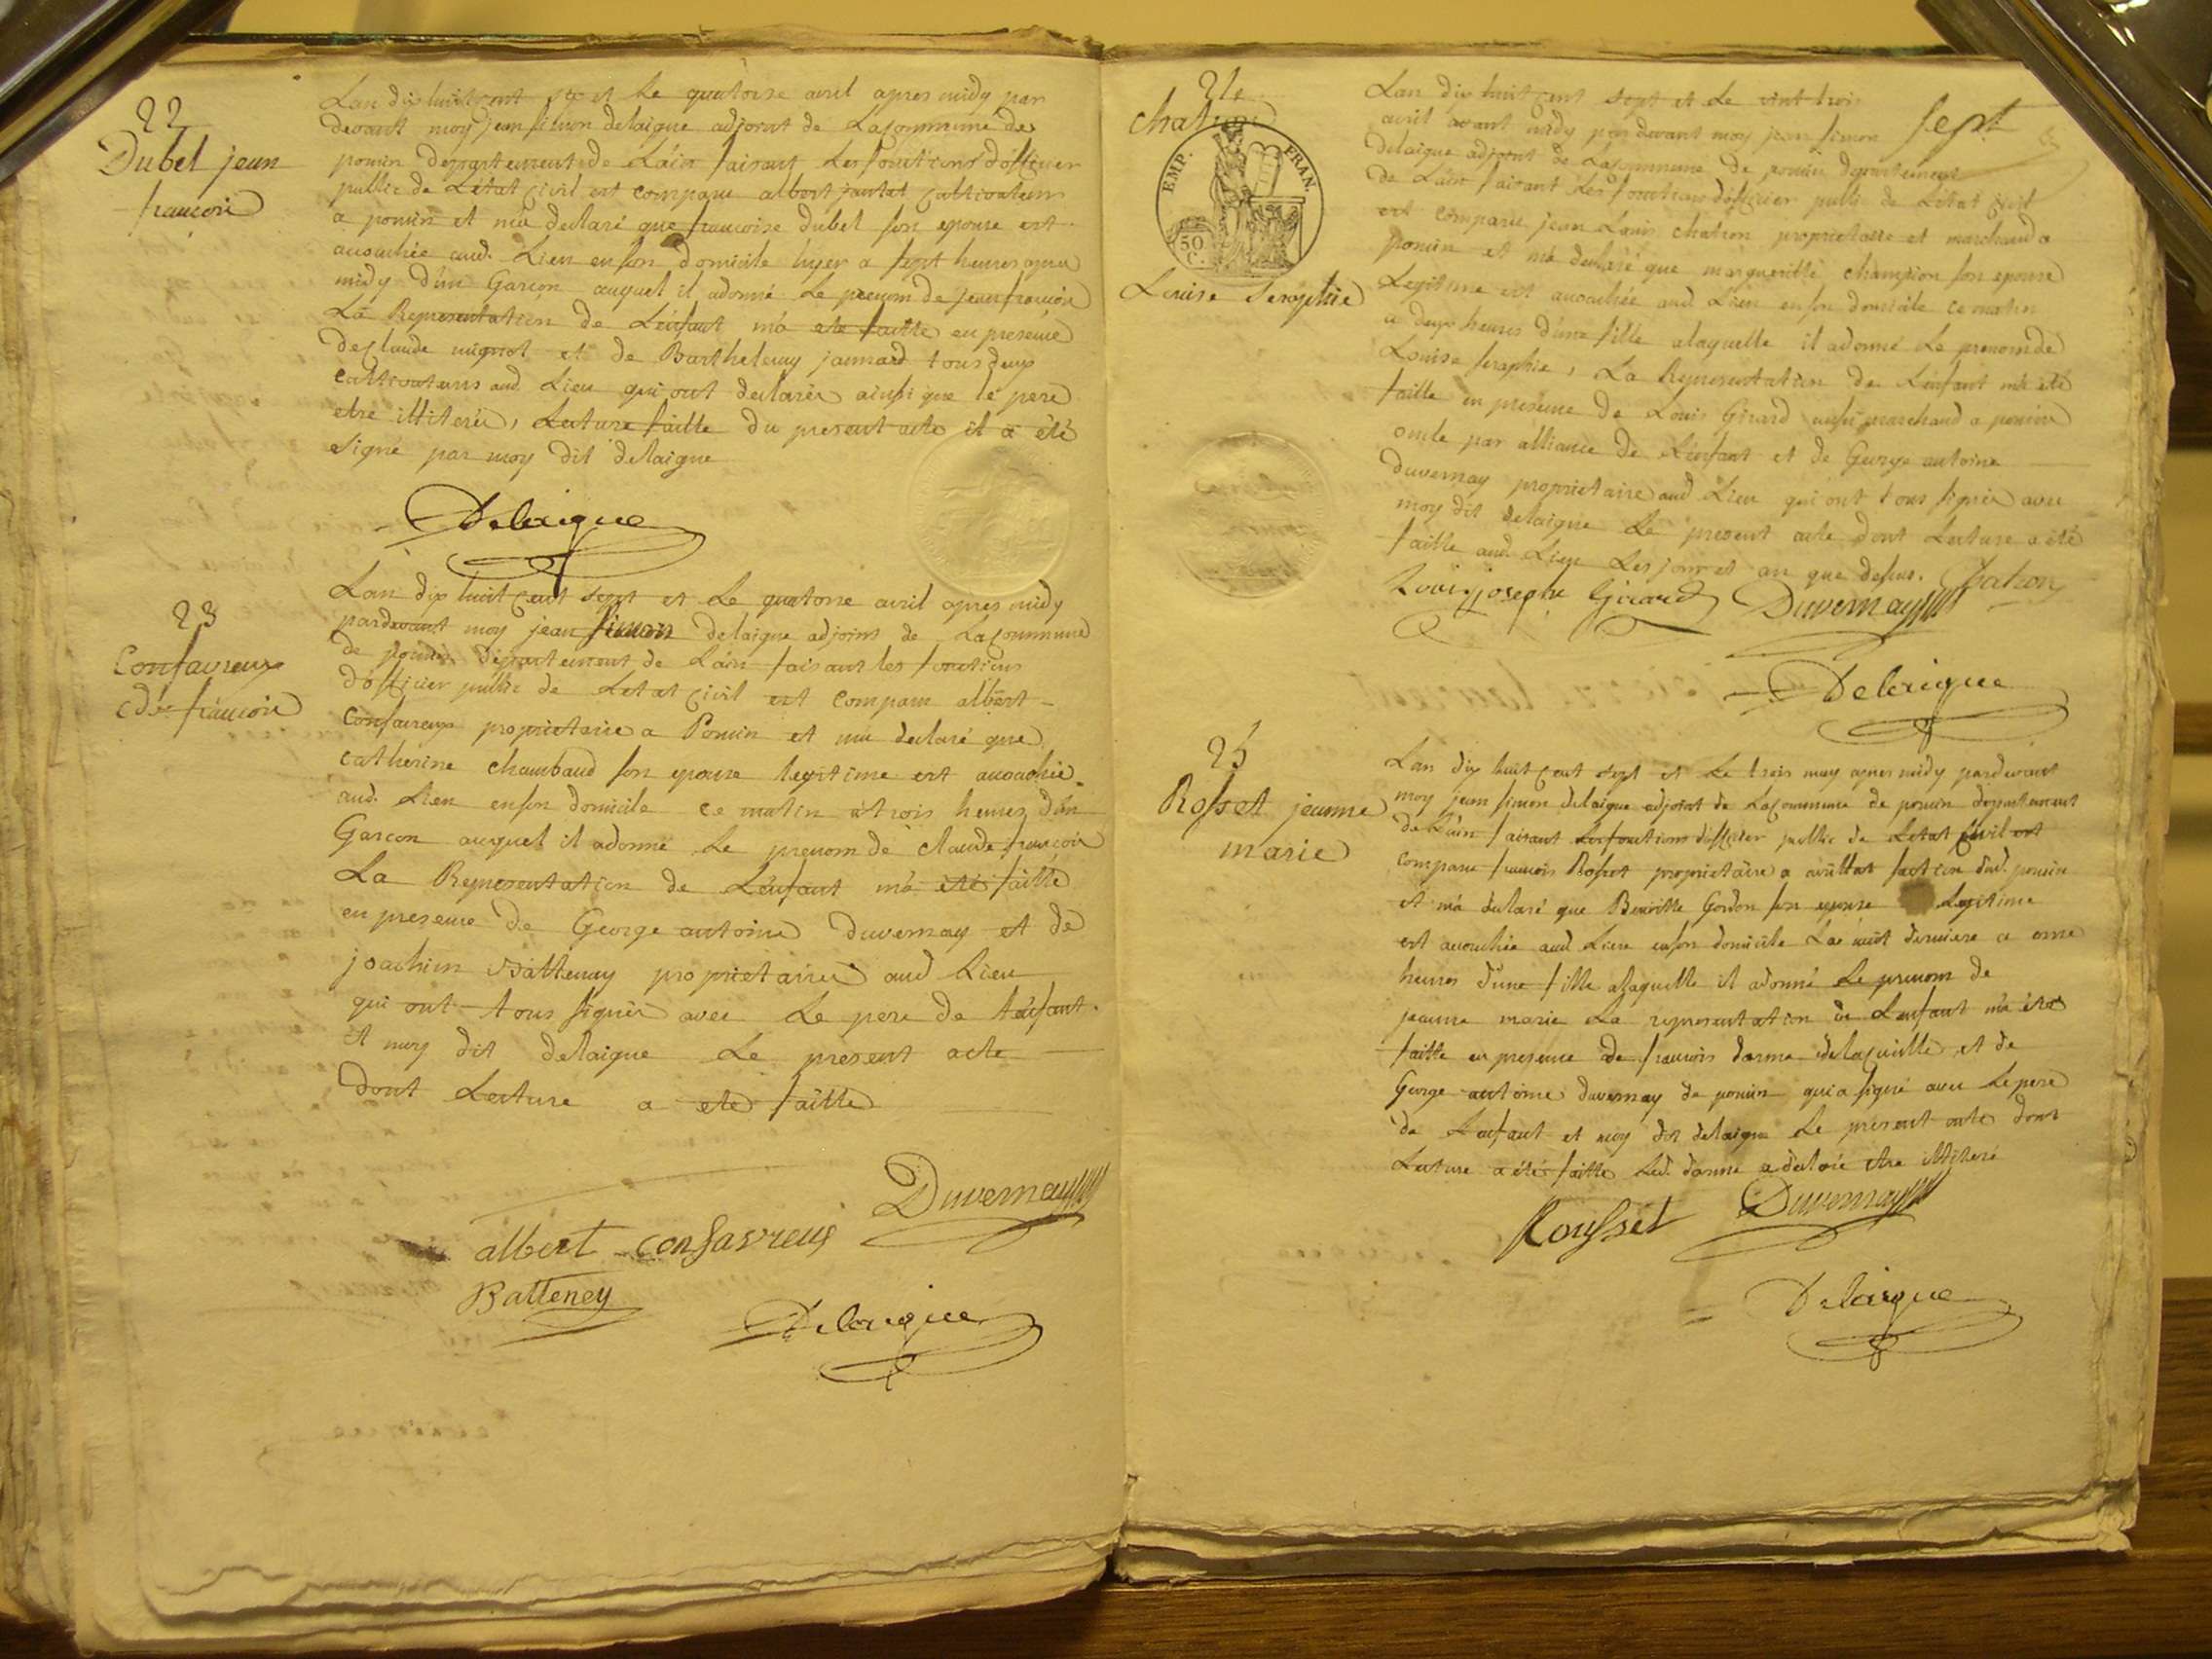 22
Dubel jean
francois
Lan dix huit cent sept et Le quatorse avril apres midy par
devant moy jean simon delaigue adjoint de Lacommune de
poncin departement de Lain faisant Les fonctions dofficier
public de Letat Civil est comparu albert jantet cultivateur
a poncin et ma declaré que francoise dubel son epouse est
acouchée aud. Lieu en son domicile hyer a sept heures apres
midy d'un Garcon auquel il adonné Le prenom de jean francois
La Representation de Lenfant ma ete faitte en presence
de Claude mignot et de Barthelemy jannard tous deux
Cultivateurs aud Lieu qui ont declarés ainsi que le pere
etre illiterés, Lecture faitte du present acte il a été
signé par moy dit delaigue
Delaigue
23
Confavreux
Cde francois
Lan dix huit cent sept et Le quatorse avril apres midy
pardevant moy jean simon delaigue adjoint de Lacommune
de poncin departement de Lain faisant les fonctions
dofficier public de Letat Civil est comparu albert
Confavreux proprietaire a Poncin et ma declaré que
catherine chambaud son epouse legitime est acouchée
aud. Lieu en son domicile ce matin a trois heures d'un
Garcon auquel il adonné Le prenom de claude francois
La Representation de Lenfant ma été faitte
en presence de George antoine Duvernay et de
joachim Battenay proprietaires aud Lieu
qui ont tous signés avec Le pere de Lenfant
et moy dit delaigue Le present acte
Dont Lecture a eté faitte
Duvernay
albert confavreux
Batteney
Delaigue
24
chatron
EMP. FRAN.
50 C.
Louise Seraphie
sept
Lan dix huit cent sept et Le vint trois
avril avant midy par devant moy jean simon
delaigue adjoint de Lacommune de poncin departement
de Lain faisant Les fonctions dofficier public de Letat Civil
est comparu jean Louis chatron proprietaire et marchand a
poncin et ma declaré que margueritte champion son epouse
Legitime est acouchée aud Lieu en son domicile ce matin
a deux heures d'une fille a laquelle il adonné Le prenom de
Louise seraphie, La Representation de Lenfant ma été
faitte en presence de Louis Girard aussi marchand a poncin
oncle par alliance de Lenfant et de George antoine
Duvernay proprietaire aud Lieu qui ont tous signés avec
moy dit delaigue Le present acte dont Lecture a été
faitte aud Lieu Les jour et an que dessus. Chatron
Louis joseph Girard Duvernay
Delaigue
25
Rosset jeanne
marie
Lan dix huit cent sept et Le trois may apres midy pardevant
moy jean simon delaigue adjoint de Lacommune de poncin departement
de Lain faisant Les fonctions dofficier public de Letat Civil est
comparu francois Rosset proprietaire a section dud. poncin
et ma declaré que Benoitte Gordon son epouse Legitime
est acouchée aud Lieu en son domicile La nuit derniere a onse
heures d'une fille alaquelle il adonné Le prenom de
jeanne marie La representation de Lenfant ma été
faitte en presence de francois darme et de
George antoine duvernay de poncin qui a signé avec Le pere
de Lenfant et moy dit delaigue Le present acte dont
Lecture a été faitte Led. darme a declaré etre illiteré
Rousset Duvernay
Delaigue